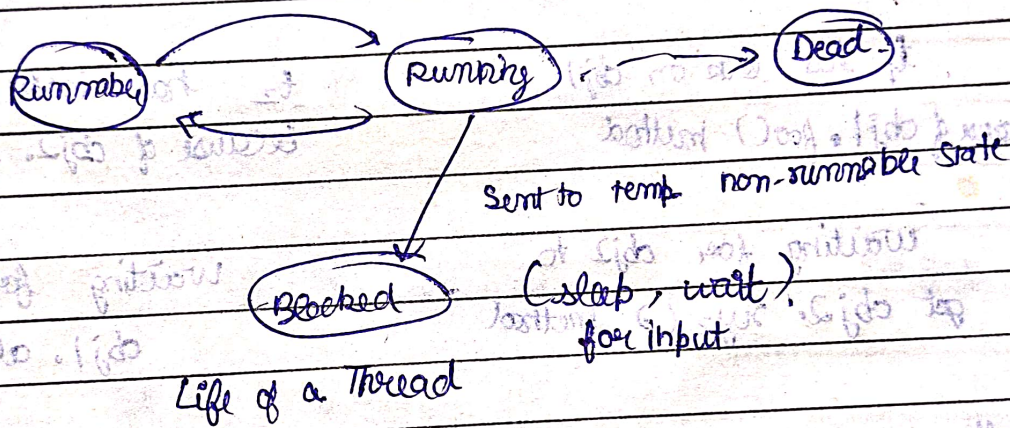 Runnable
Running
Dead
Sent to temp. non-runnable state
Blocked
(sleep, wait)
for input.
Life of a Thread